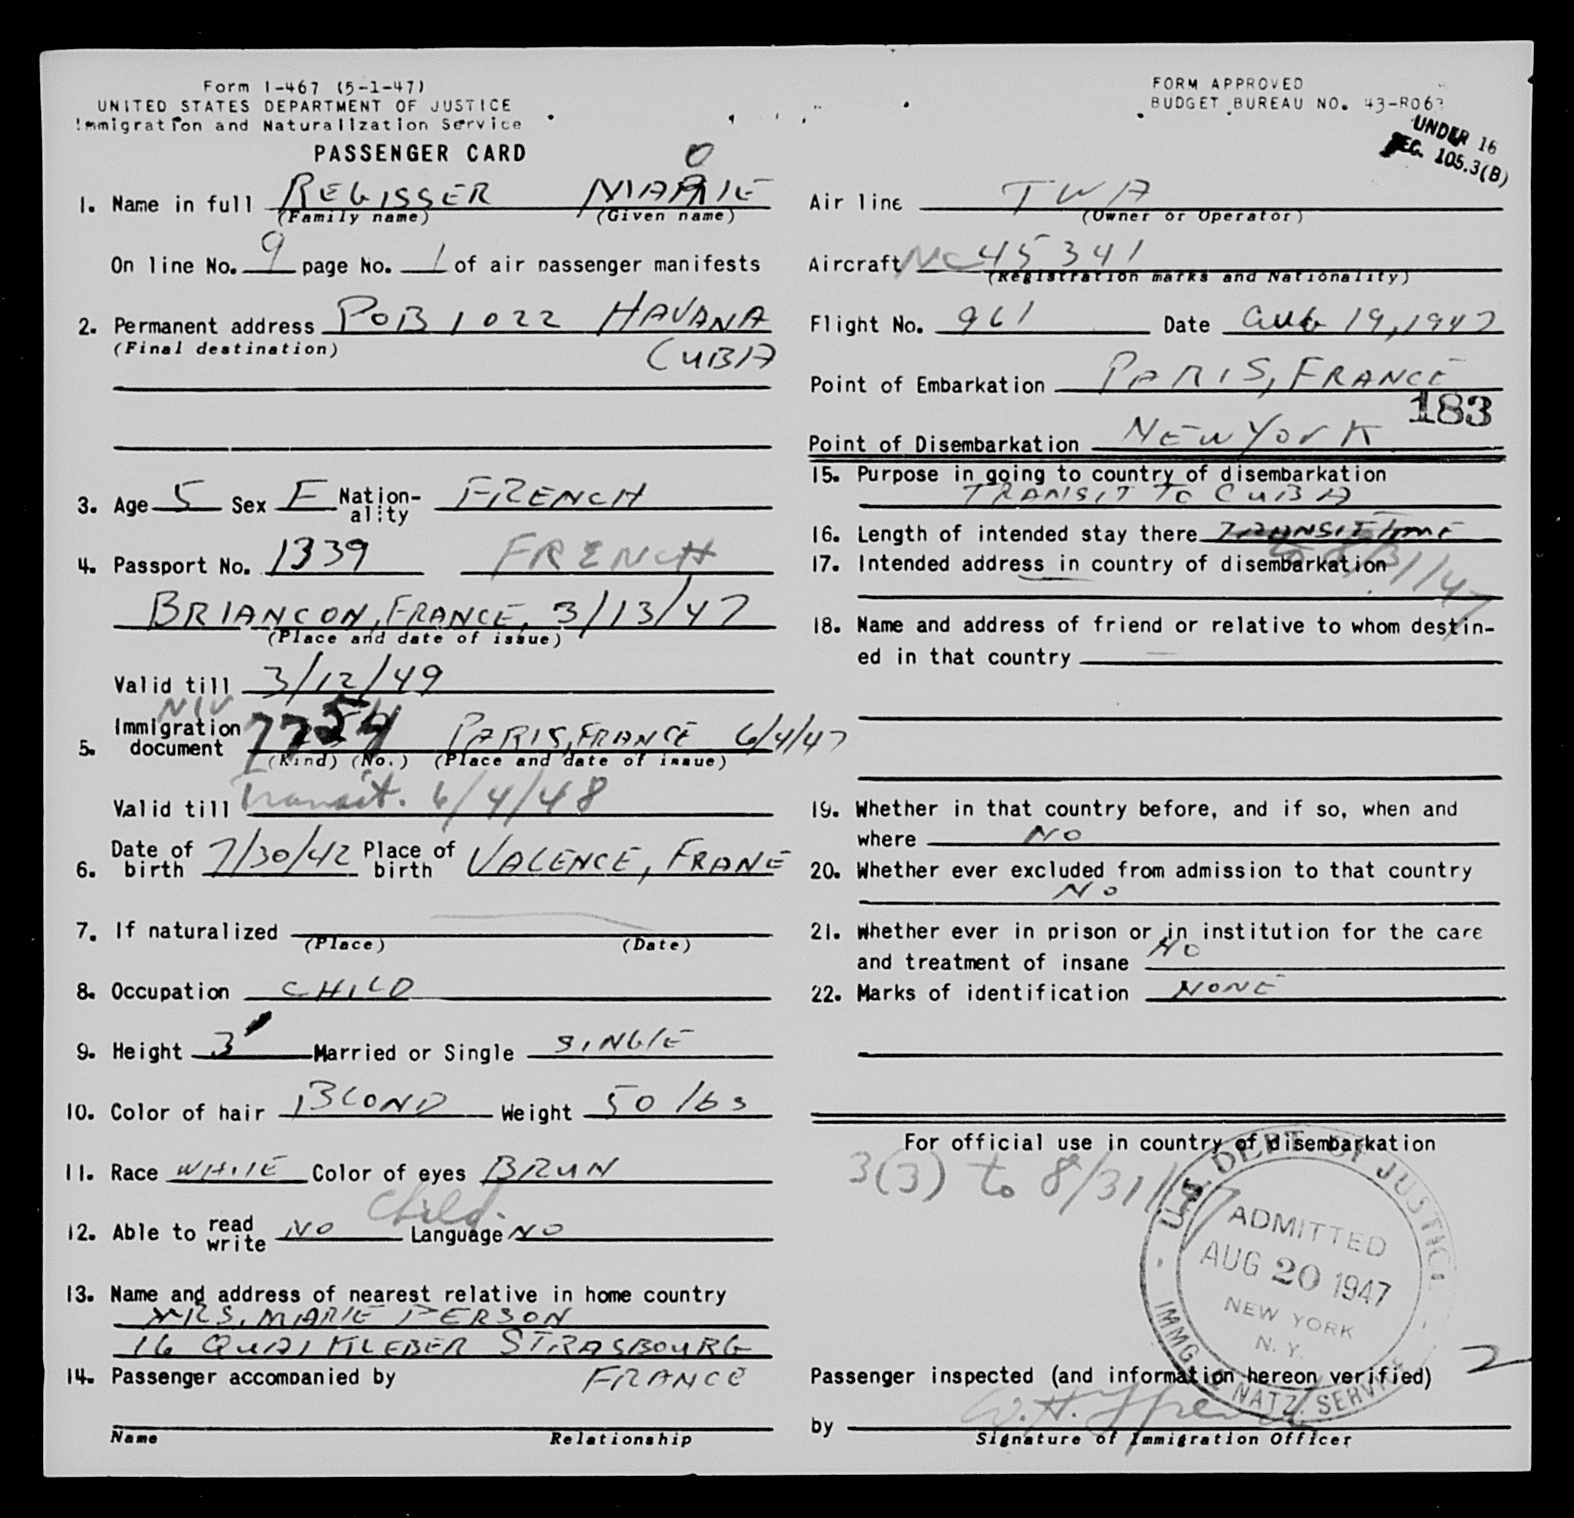 Form I-467 (5-1-47)
UNITED STATES DEPARTMENT OF JUSTICE
Immigration and Naturalization Service
PASSENGER CARD
FORM APPROVED
BUDGET BUREAU NO. 43-R063
UNDER 16
SEC. 105.3(B)
1. Name in full REGISSER MARIE
(Family name) (Given name)
On line No. 9 page No. 1 of air passenger manifests
2. Permanent address POB 1022 HAVANA
(Final destination) CUBA
3. Age 5 Sex F Nation-ality FRENCH
4. Passport No. 1339 FRENCH
BRIANCON, FRANCE, 3/13/47
(Place and date of issue)
Valid till 3/12/49
NIV
5. Immigration document 7754 PARIS, FRANCE 6/4/47
(Kind) (No.) (Place and date of issue)
Valid till Transit. 6/4/48
6. Date of birth 7/30/42 Place of birth VALENCE, FRANE
7. If naturalized
(Place) (Date)
8. Occupation CHILD
9. Height 3' Married or Single SINGLE
10. Color of hair BLOND Weight 50 lbs
11. Race WHITE Color of eyes BRUN
child.
12. Able to read write NO Language NO
13. Name and address of nearest relative in home country
MRS. MARIE PERSON
16 QUAI KLEBER STRASBOURG
FRANCE
14. Passenger accompanied by
Name Relationship
Air line TWA
(Owner or Operator)
Aircraft NC 45341
(Registration marks and Nationality)
Flight No. 961 Date Aug 19, 1947
Point of Embarkation PARIS, FRANCE
183
Point of Disembarkation NEW YORK
15. Purpose in going to country of disembarkation
TRANSIT TO CUBA
16. Length of intended stay there TRANSIT TIME
to 8/31/47
17. Intended address in country of disembarkation
18. Name and address of friend or relative to whom destin-
ed in that country
19. Whether in that country before, and if so, when and
where NO
20. Whether ever excluded from admission to that country
NO
21. Whether ever in prison or in institution for the care
and treatment of insane NO
22. Marks of identification NONE
For official use in country of disembarkation
3(3) to 8/31/47
U.S. DEPT. OF JUSTICE
ADMITTED
AUG 20 1947
NEW YORK
N. Y.
IMMG. & NATZ. SERVICE
2
Passenger inspected (and information hereon verified)
by
Signature of Immigration Officer